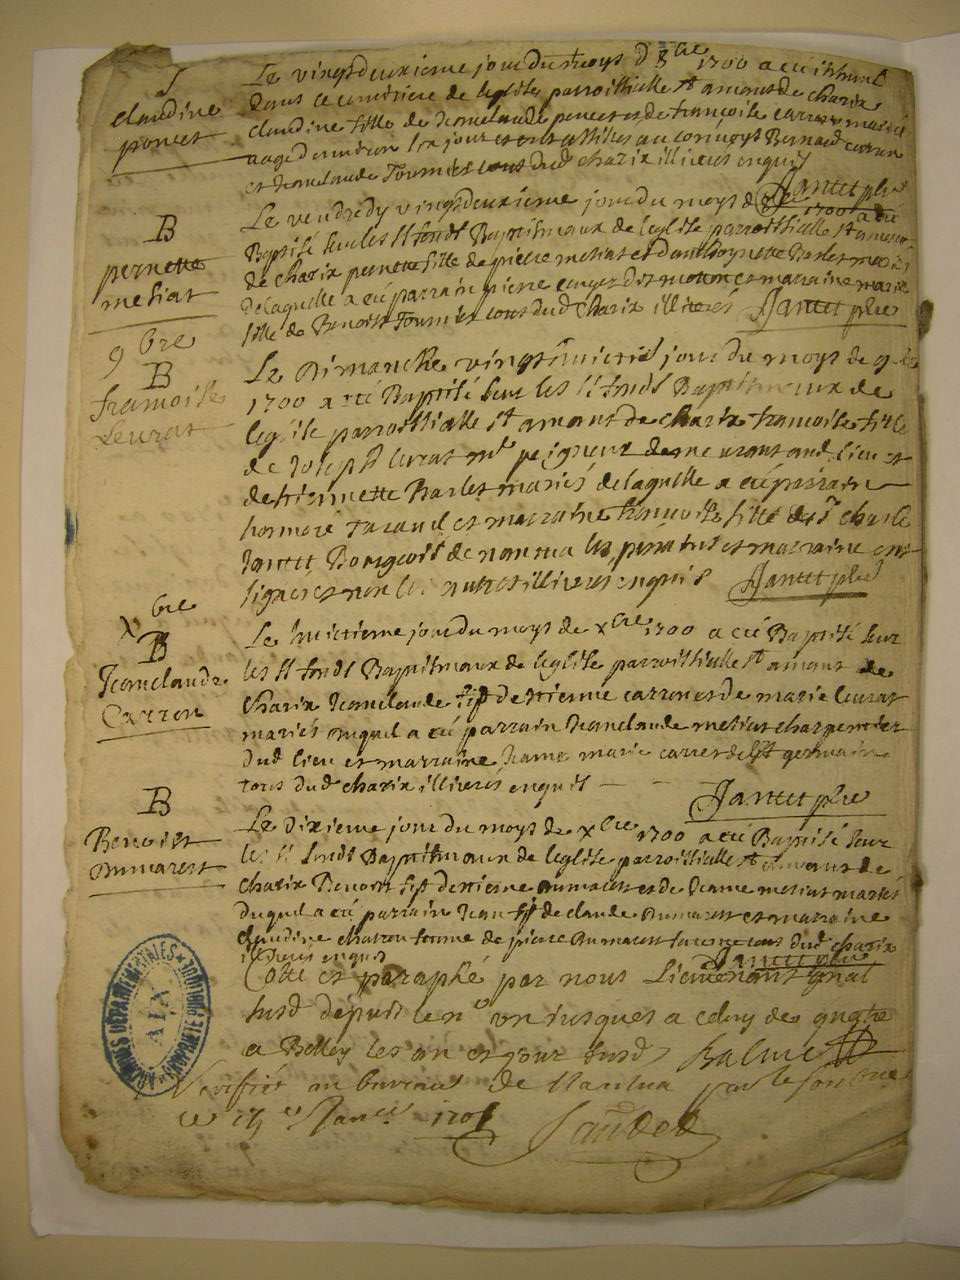 S
claudine
poncet
Le vingtdeuxieme jour du moys d 8bre 1700 a eté inhumé
dans le cimetiere de leglise parroissialle st amant de charix
claudine fille de Jeanclaude poncet et de françoise carron mariés
aagé denviron six jour et ont assistes au convoys Bernard carron
et Jeanclaude Tournier tous dud charix illiteres enquis
Jantet pbre
B
pernette
mesiat
Le vendredy vingtdeuxieme jour du moys d 8bre 1700 a eté
Baptisé sur les st fonds Baptismaux de leglise parroissialle st amant
de charix pernette fille de pierre mesiat et d'anthoynette Barlet mariés
de laquelle a eté parrain pierre et marraine marie
fille de Benoist Tournier tous dud charix illiteres Jantet pbre
9bre
B
francoise
Leurat
Le Dimanche vingthuictie jour du moys de 9bre
1700 a eté Baptisé sur les st fonds Baptismaux de
leglise parroissialle st amant de charix francoise fille
de Joseph leurat mr peigneur demeurant aud lieu et
destiennette Barlet mariés de laquelle a eté parrain
honnoré et marraine francoise fille de sr charle
Jantet Bourgeois de nantua les parain et marraine ont
signes et non les autres illiteres enquis Jantet pbre
Xbre
B
Jeanclaude
Carron
Le huictieme jour du moys de xbre 1700 a eté Baptisé sur
les st fonds Baptismaux de leglise parroissialle st amant de
charix Jeanclaude fils destienne carron et de marie leurat
mariés duquel a eté parrain Jeanclaude mesiat charpentier
dud lieu et marraine Jeanne marie carrier de st germain
tous dud charix illiterés enquis
Jantet pbre
B
Benoist
Dumarest
Le dixieme jour du moys de xbre 1700 a eté Baptisé sur
les st fonds Baptismaux de leglise parroissialle st amant de
charix Benoist fils destienne dumarest et de Jeanne mesiat mariés
duquel a eté parrain Jean fils de claude Dumarest et marraine
claudine femme de pierre Dumarest tous dud charix
illiteres enquis Jantet pbre
Cotté et paraphé par nous Lieutenant gnal
susd depuis le no un jusques a celuy de quatre
a Belley les an et jour susd Balme
Veriffié au bureau de Nantua par le
ce Janer 1701
ARCHIVES DEPARTEMENTALES
AIN